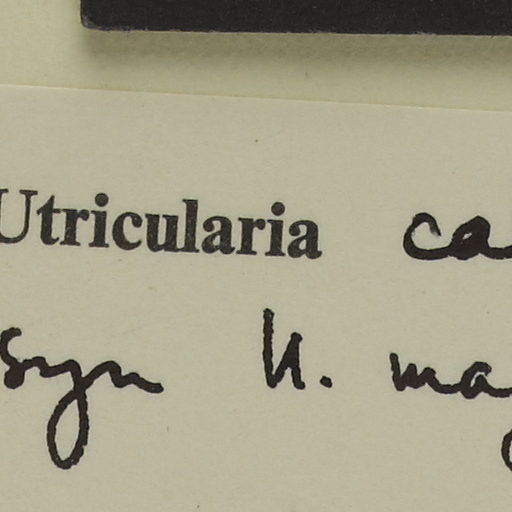 Utricularia ca
syn U. ma